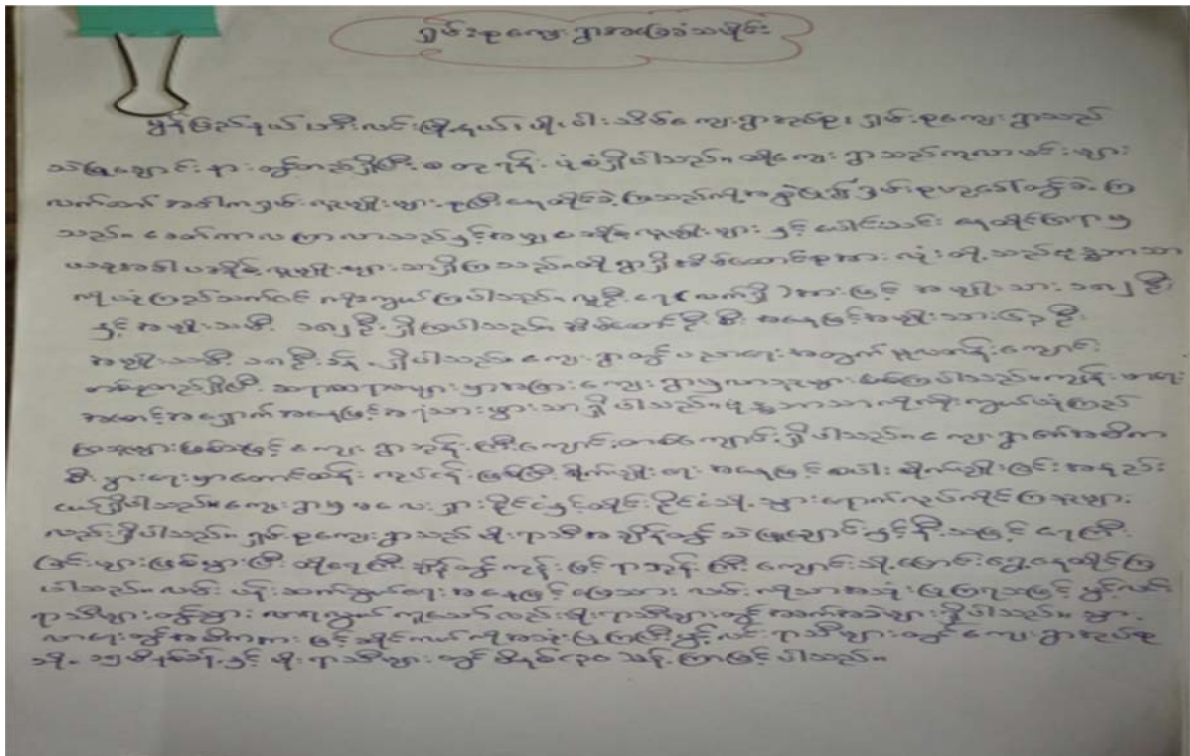 ရှမ်းစုကျေးရွာအခြေခံသမိုင်း
မွန်ပြည်နယ်၊ ဘီးလင်းမြို့နယ်၊ ဟိုပါးသိမ်ကျေးရွာအုပ်စု၊ ရှမ်းစုကျေးရွာသည်
သဲဖြူချောင်းနားတွင်တည်ရှိပြီး စတုရန်းပုံစံရှိပါသည်။ ထိုကျေးရွာသည်ကုလားမင်းများ
လက်ထက်အခါကရှမ်းလူမျိုးများစုပြီးနေထိုင်ခဲ့ကြသည်ကိုအစွဲပြု၍ရှမ်းစုဟုခေါ်တွင်ခဲ့ကြ
သည်။ ခေတ်ကာလကြာလာသည်နှင့်အမျှ ပအိုဝ့်လူမျိုးများနှင့်ပေါင်းသင်းနေထိုင်ကြရာမှ
ယခုအခါပအိုဝ့်လူမျိုးများသာရှိကြသည်။ ထိုရွာရှိအိမ်ထောင်စုအားလုံးတို့သည်ဗုဒ္ဓဘာသာ
ကိုယုံကြည်သက်ဝင်ကိုးကွယ်ကြပါသည်။ လူဦးရေ (လက်ရှိ) အားဖြင့် အမျိုးသား ၁၈၂ ဦး
နှင့် အမျိုးသမီး ၁၈၂ ဦးရှိကြပါသည်။ အိမ်ထောင်ဦးစီးအနေဖြင့်အမျိုးသား ဦး
အမျိုးသမီး ဦးခန့်ရှိပါသည်။ ကျေးရွာတွင်ပညာရေးအတွက်မူလတန်းကျောင်း
တစ်ခုတည်ရှိပြီး ဆရာဆရာမများမှာအခြားကျေးရွာမှလာသူများဖြစ်ကြပါသည်။ ကျန်းမာရေး
အစောင့်အရှောက်အနေဖြင့်အရံသားဖွားသာရှိပါသည်။ ဗုဒ္ဓဘာသာကိုကိုးကွယ်ယုံကြည်
ကြသူများဖြစ်သဖြင့် ကျေးရွာဘုန်းကြီးကျောင်းတစ်ကျောင်းရှိပါသည်။ ကျေးရွာ၏အဓိက
စီးပွားရေးမှာတောင်ထွန်းလုပ်ငန်းဖြစ်ပြီး စိုက်ပျိုးရေးအနေဖြင့်စပါးစိုက်ပျိုးခြင်းအနည်း
ငယ်ရှိပါသည်။ ကျေးရွာမှမလေးရှားနိုင်ငံနှင့်ထိုင်းနိုင်ငံသို့သွားရောက်လုပ်ကိုင်ကြသူများ
လည်းရှိပါသည်။ ရှမ်းစုကျေးရွာသည် မိုးရာသီအချိန်တွင် သဲဖြူချောင်းနှင့်နီးသဖြင့် ရေကြီး
ခြင်းများဖြစ်ပွားပြီး ထိုရေကြီးချိန်တွင်ကုန်းမြင့်ရာဘုန်းကြီးကျောင်းသို့ပြောင်းရွှေ့နေထိုင်ကြ
ပါသည်။ လမ်းပန်းဆက်သွယ်ရေးအနေဖြင့်မြေသားလမ်းကိုသာအသုံးပြုကြရသဖြင့် ပွင့်လင်း
ရာသီများတွင်သွားလာရလွယ်ကူသော်လည်းမိုးရာသီများတွင်အခက်အခဲများရှိပါသည်။ သွား
လာရေးတွင်အဓိကအားဖြင့်ဆိုင်ကယ်ကိုအသုံးပြုကြပြီးပွင့်လင်းရာသီများတွင်ကျေးရွာအုပ်စု
သို့ ၁၅ မိနစ်ခန့်နှင့် မိုးရာသီများတွင် မိနစ် ၃၀ ခန့်ကြာမြင့်ပါသည်။